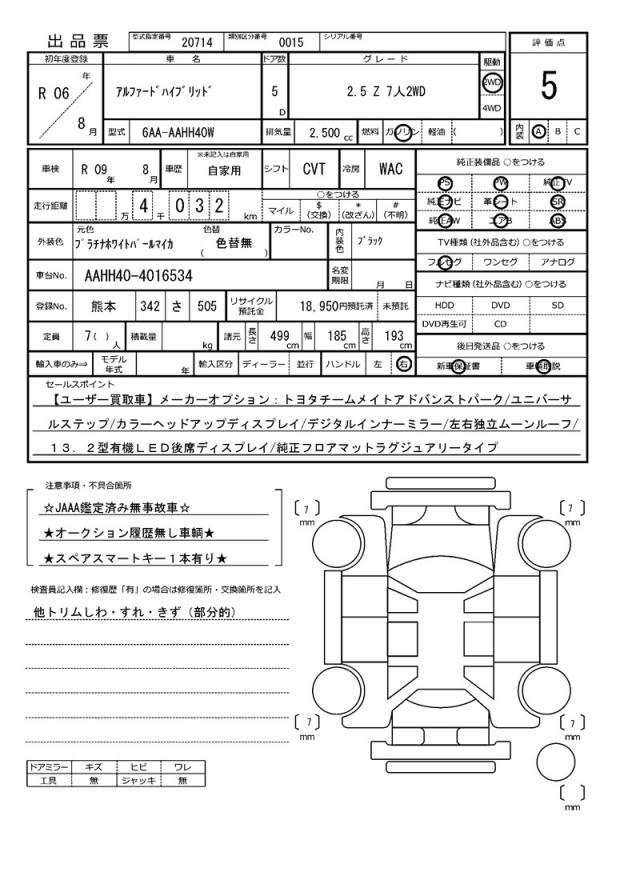 出品票 型式指定番号 20714 類別区分番号 0015 シリアル番号
評価点
5
内装 A B C
初年度登録 車名 ドア数 グレード 駆動
R 06 年 8 月 アルファードハイブリッド 5 D 2.5 Z 7人2WD 2WD
4WD
型式 6AA-AAHH40W 排気量 2,500 cc 燃料 ガソリン 軽油 ( )
車検 R 09 年 8 月 車歴 ※未記入は自家用 自家用 シフト CVT 冷房 WAC
走行距離 万 4 千 0 3 2 km
○をつける
マイル $(交換) *(改ざん) #(不明)
外装色 元色 プラチナホワイトパールマイカ 色替 ( 色替無 ) カラーNo. 内装色 ブラック
車台No. AAHH40-4016534 名変期限 月 日
登録No. 熊本 342 さ 505 リサイクル預託金 18,950円預託済 未預託
定員 7( )人 積載量 kg 諸元 長さ 499 cm 幅 185 cm 高さ 193 cm
輸入車のみ⇒ モデル年式 年 輸入区分 ディーラー 並行 ハンドル 左 右
純正装備品 ○をつける
PS PW 純正TV
純正ナビ 革シート SR
純正AW エアB ABS
TV種類(社外品含む) ○をつける
フルセグ ワンセグ アナログ
ナビ種類(社外品含む) ○をつける
HDD DVD SD
DVD再生可 CD
後日発送品 ○をつける
新車保証書 車輌取説
セールスポイント
【ユーザー買取車】メーカーオプション:トヨタチームメイトアドバンストパーク/ユニバーサ
ルステップ/カラーヘッドアップディスプレイ/デジタルインナーミラー/左右独立ムーンルーフ/
13.2型有機LED後席ディスプレイ/純正フロアマットラグジュアリータイプ
注意事項・不具合箇所
☆JAAA鑑定済み無事故車☆
★オークション履歴無し車輌★
★スペアスマートキー1本有り★
検査員記入欄:修復歴「有」の場合は修復箇所・交換箇所を記入
他トリムしわ・すれ・きず(部分的)
ドアミラー キズ ヒビ ワレ
工具 無 ジャッキ 無
〔 7 〕mm 〔 7 〕mm
〔 7 〕mm 〔 7 〕mm
〔 〕mm